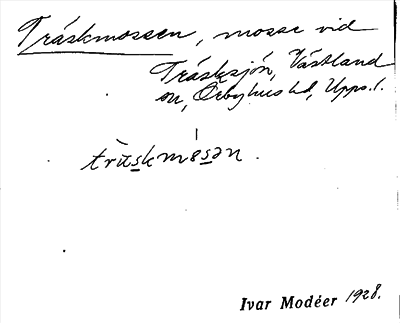 Träskmossen, mosse vid
Träsksjön, Västland
sn, Örbyhus hd, Upps. l.
trùskmosən.
Ivar Modéer 1928.